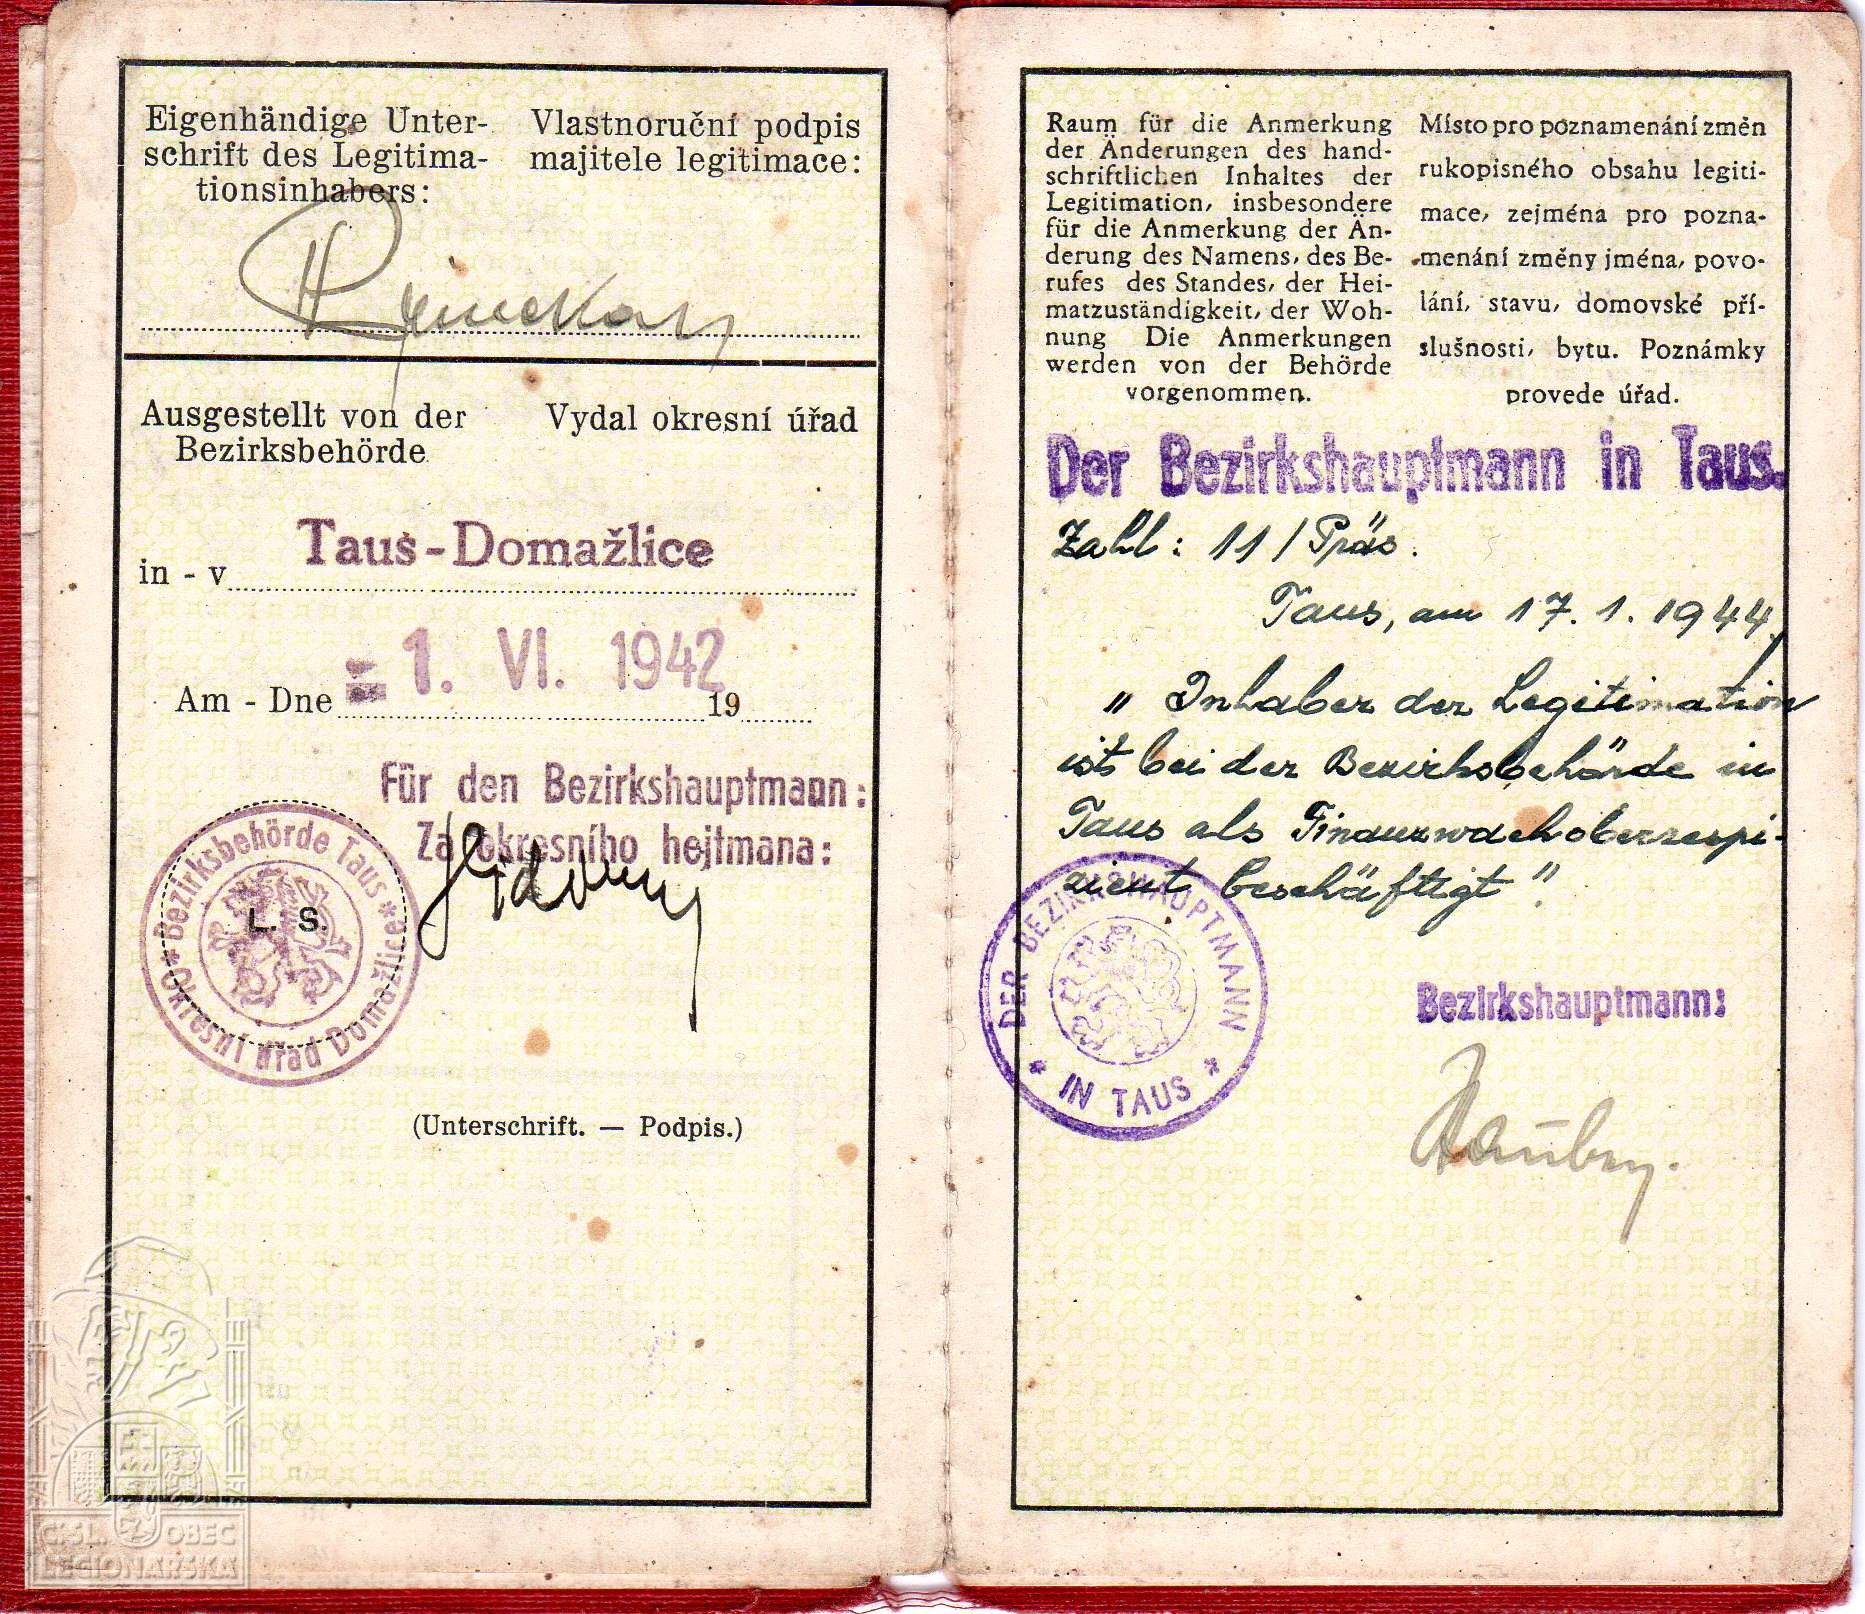 Eigenhändige Unter-
schrift des Legitima-
tionsinhabers:
Vlastnoruční podpis
majitele legitimace:
Ausgestellt von der
Bezirksbehörde
Vydal okresní úřad
in - v Taus-Domažlice
Am - Dne 1. VI. 1942 19
Für den Bezirkshauptmann:
Za okresního hejtmana:
* Bezirksbehörde Taus *
Okresní úřad Domažlice
L. S.
(Unterschrift. — Podpis.)
Raum für die Anmerkung
der Änderungen des hand-
schriftlichen Inhaltes der
Legitimation, insbesondere
für die Anmerkung der Än-
derung des Namens, des Be-
rufes des Standes, der Hei-
matzuständigkeit, der Woh-
nung Die Anmerkungen
werden von der Behörde
vorgenommen.
Místo pro poznamenání změn
rukopisného obsahu legiti-
mace, zejména pro pozna-
menání změny jména, povo-
lání, stavu, domovské pří-
slušnosti, bytu. Poznámky
provede úřad.
Der Bezirkshauptmann in Taus.
Zahl: 11/Präs.
Taus, am 17.1.1944.
„Inhaber der Legitimation
ist bei der Bezirksbehörde in
Taus als Finanzwachoberrespi-
zient beschäftigt".
DER BEZIRKSHAUPTMANN
* IN TAUS *
Bezirkshauptmann:
ČSL. OBEC
LEGIONÁŘSKÁ